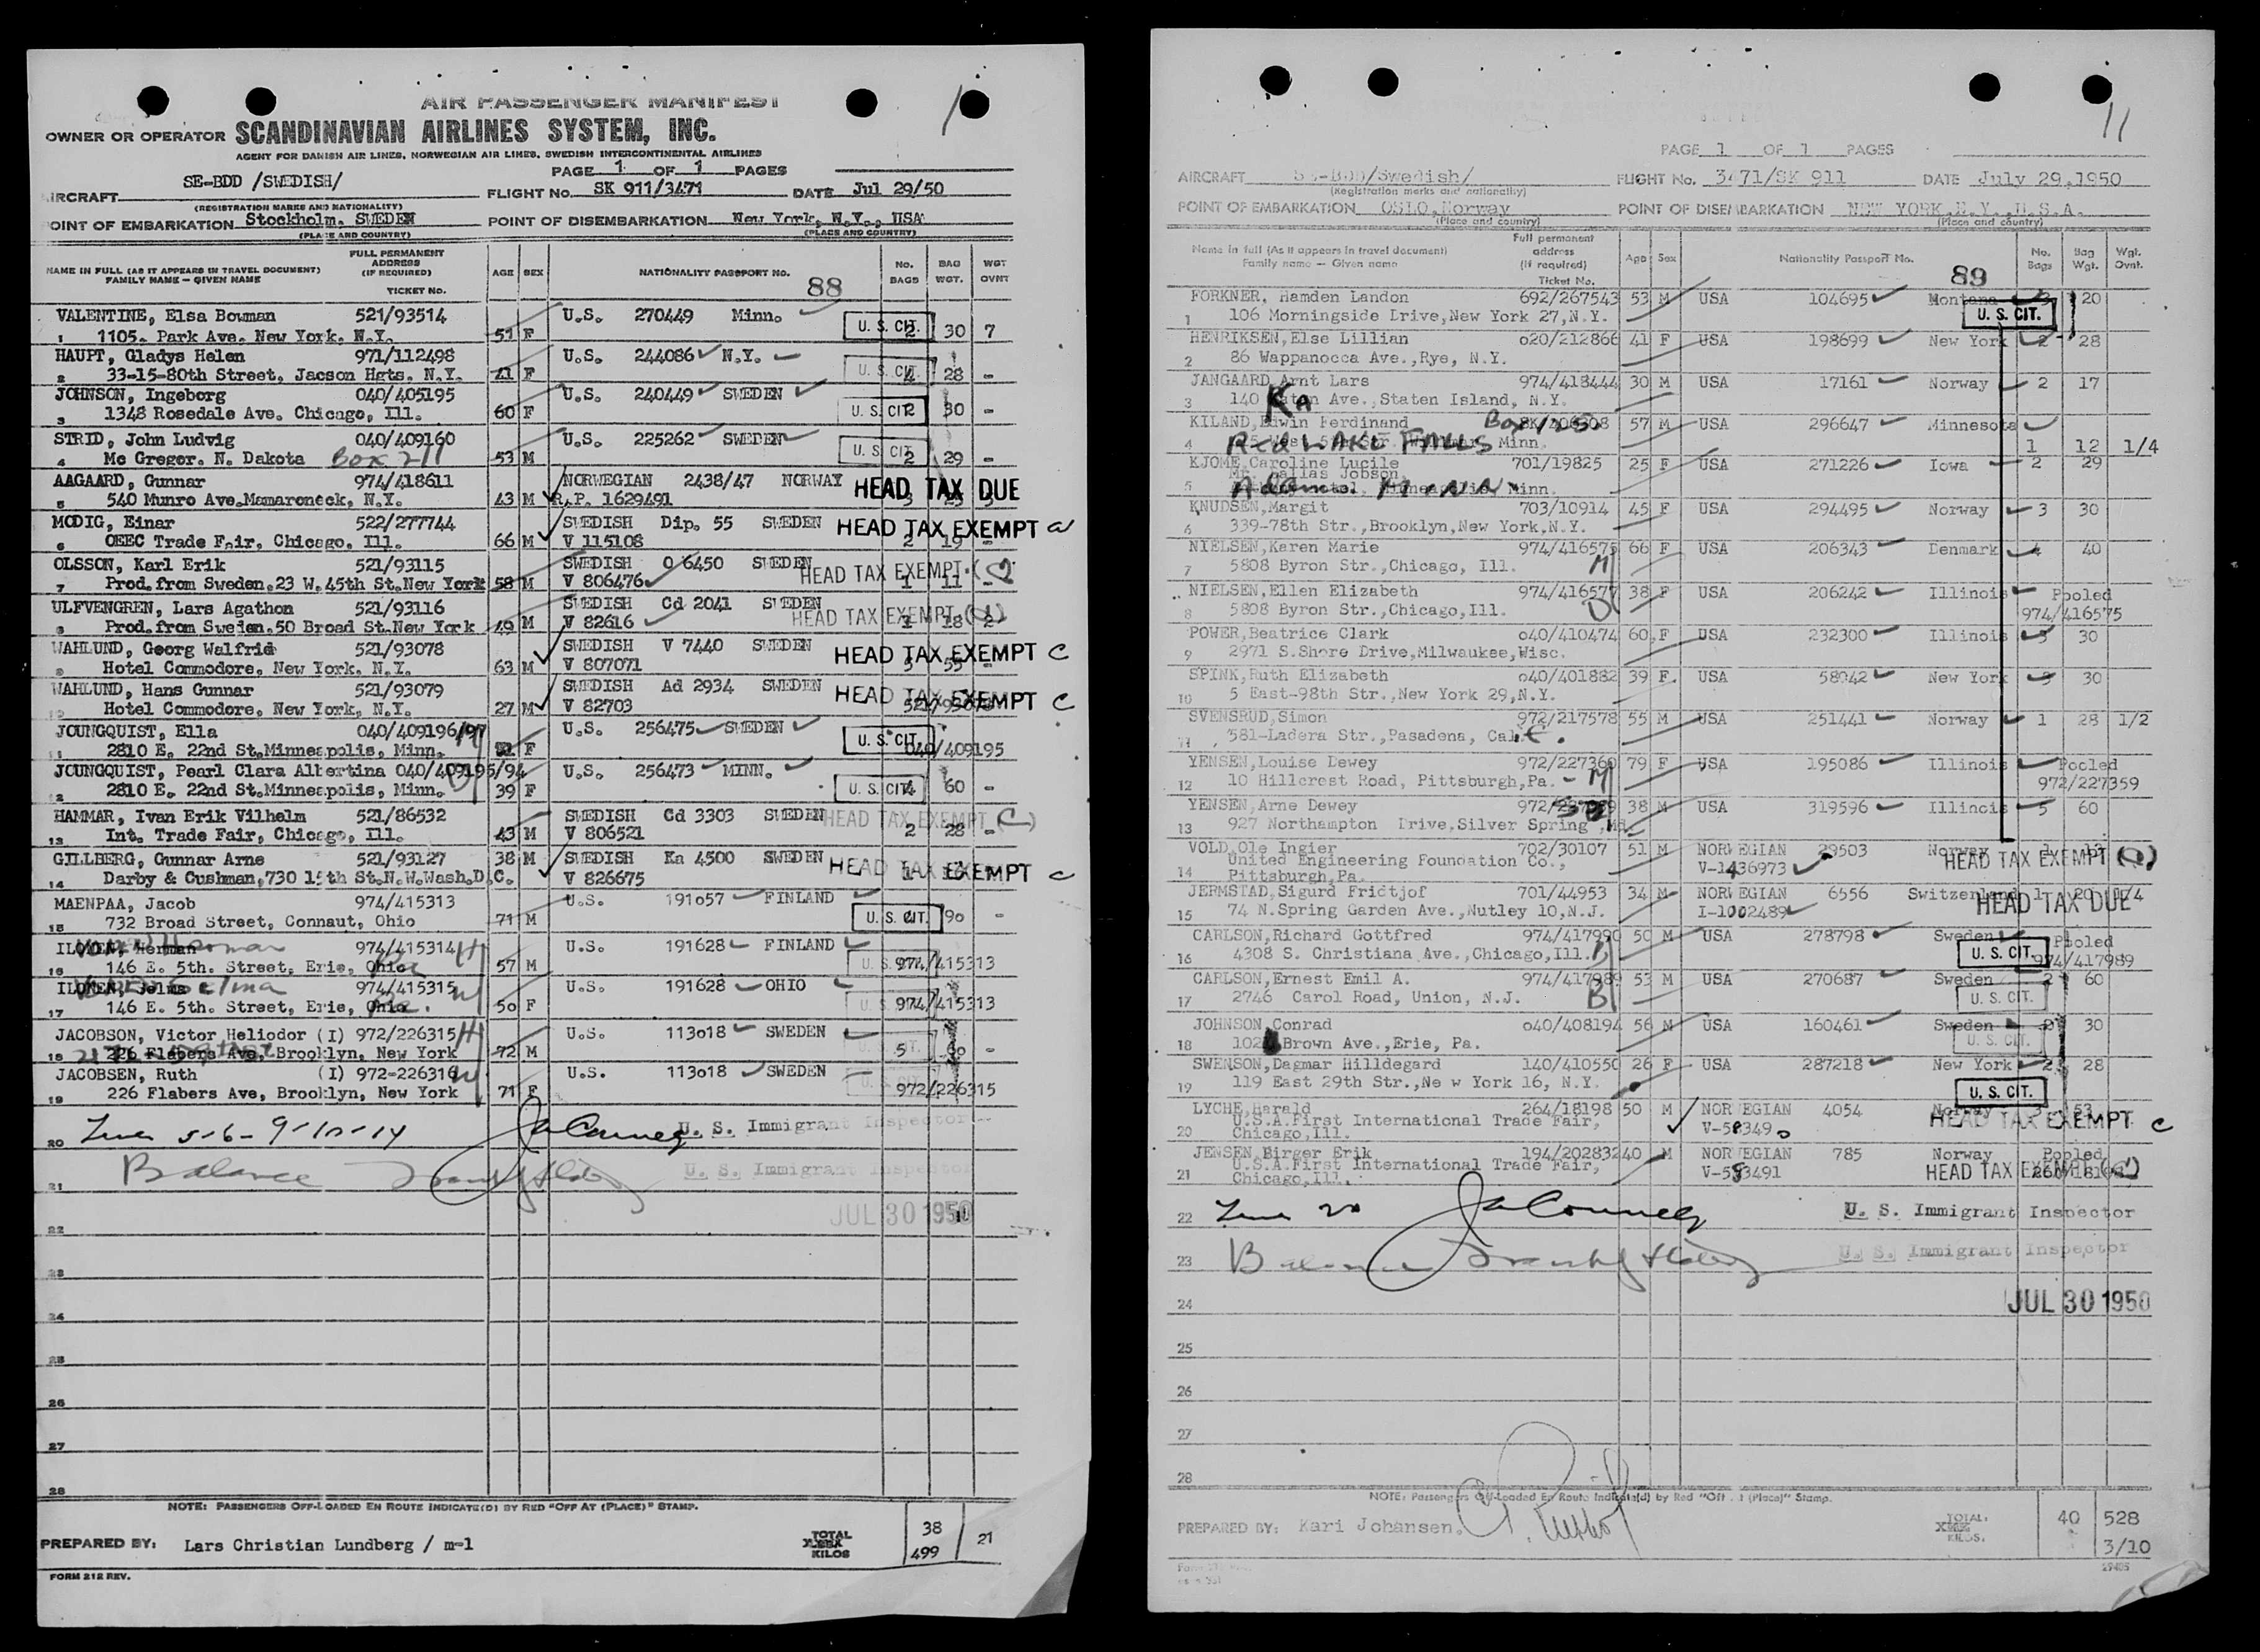 AIR PASSENGER MANIFEST
OWNER OR OPERATOR SCANDINAVIAN AIRLINES SYSTEM, INC.
AGENT FOR DANISH AIR LINES, NORWEGIAN AIR LINES, SWEDISH INTERCONTINENTAL AIRLINES
PAGE 1 OF 1 PAGES
AIRCRAFT SE-BDD /SWEDISH/ FLIGHT No. SK 911/3471 DATE Jul 29/50
(REGISTRATION MARKS AND NATIONALITY)
POINT OF EMBARKATION Stockholm, SWEDEN POINT OF DISEMBARKATION New York, N.Y., USA
(PLACE AND COUNTRY) (PLACE AND COUNTRY)
NAME IN FULL (AS IT APPEARS IN TRAVEL DOCUMENT) FAMILY NAME – GIVEN NAME FULL PERMANENT ADDRESS (IF REQUIRED) TICKET No. AGE SEX NATIONALITY PASSPORT No. No. BAGS BAG WGT. WGT OVNT
88
VALENTINE, Elsa Bowman 521/93514 U.S. 270449 Minn. U. S. CIT.
1 1105. Park Ave. New York. N.Y. 51 F 30 7
HAUPT, Gladys Helen 971/112498 U.S. 244086 N.Y. U. S. CIT.
2 33-15-80th Street, Jacson Hgts. N.Y. 41 F 28 -
JOHNSON, Ingeborg 040/405195 U.S. 240449 SWEDEN
3 1348 Rosedale Ave. Chicago, Ill. 60 F U. S. CIT. 2 30 -
STRID, John Ludvig 040/409160 U.S. 225262 SWEDEN
4 Mc Greger. N. Dakota Box 211 53 M U. S. CIT. 2 29 -
AAGAARD, Gunnar 974/418611 NORWEGIAN 2438/47 NORWAY HEAD TAX DUE
5 540 Munro Ave.Mamaroneck, N.Y. 43 M R.P. 1629491
MODIG, Einar 522/277744 SWEDISH Dip. 55 SWEDEN HEAD TAX EXEMPT
6 OEEC Trade Fair, Chicago, Ill. 66 M V 115108 2 19 -
OLSSON, Karl Erik 521/93115 SWEDISH O 6450 SWEDEN HEAD TAX EXEMPT
7 Prod.from Sweden,23 W.45th St.New York 58 M V 806476 1 11 -
ULFVENGREN, Lars Agathon 521/93116 SWEDISH Cd 2041 SWEDEN HEAD TAX EXEMPT
8 Prod.from Sweden.50 Broad St.New York 49 M V 82616 18 2
WAHLUND, Georg Walfrid 521/93078 SWEDISH V 7440 SWEDEN HEAD TAX EXEMPT C
9 Hotel Commodore, New York. N.Y. 63 M V 807071
WAHLUND, Hans Gunnar 521/93079 SWEDISH Ad 2934 SWEDEN HEAD TAX EXEMPT C
10 Hotel Commodore, New York, N.Y. 27 M V 82703 521/93078
JOUNGQUIST, Ella 040/409196/97 U.S. 256475 SWEDEN U. S. CIT.
11 2810 E. 22nd St.Minneapolis, Minn. F 040/409195
JOUNGQUIST, Pearl Clara Albertina 040/409195/94 U.S. 256473 MINN.
12 2810 E. 22nd St.Minneapolis, Minn. 39 F U. S. CIT. 4 60 -
HAMMAR, Ivan Erik Vilhelm 521/86532 SWEDISH Cd 3303 SWEDEN HEAD TAX EXEMPT
13 Int. Trade Fair, Chicago, Ill. 43 M V 806521 2 28 -
GILLBERG, Gunnar Arne 521/93127 38 M SWEDISH Ka 4500 SWEDEN HEAD TAX EXEMPT C
14 Darby & Cushman,730 15th St.N.W.Wash.D.C. V 826675
MAENPAA, Jacob 974/415313 U.S. 191057 FINLAND
15 732 Broad Street, Connaut, Ohio 71 M U. S. CIT. 90 -
ILONEN, Herman 974/415314 H U.S. 191628 FINLAND
16 146 E. 5th. Street, Erie, Ohio Pa 57 M U. S. 974/415313
ILONEN, Selma 974/415315 W U.S. 191628 OHIO
17 146 E. 5th. Street, Erie, Ohio 50 F U. S. 974/415313
JACOBSON, Victor Heliodor (I) 972/226315 H U.S. 113018 SWEDEN
18 226 Flabers Ave, Brooklyn, New York 72 M 5 -
JACOBSEN, Ruth (I) 972-226316 W U.S. 113018 SWEDEN
19 226 Flabers Ave, Brooklyn, New York 71 F 972/226315
20 5-6-9-10-14 U. S. Immigrant Inspector
21 Balance U. S. Immigrant Inspector
JUL 30 1950
22
23
24
25
26
27
28
NOTE: PASSENGERS OFF-LOADED EN ROUTE INDICATE(D) BY RED "OFF AT (PLACE)" STAMP.
PREPARED BY: Lars Christian Lundberg / m-l TOTAL KILOS 38 499 21
FORM 212 REV.
11
PAGE 1 OF 1 PAGES
AIRCRAFT SE-BDD/Swedish/ FLIGHT No. 3471/SK 911 DATE July 29,1950
(Registration marks and nationality)
POINT OF EMBARKATION OSLO,Norway POINT OF DISEMBARKATION NEW YORK,N.Y.,U.S.A.
(Place and country) (Place and country)
Name in full (As it appears in travel document) Family name – Given name Full permanent address (If required) Ticket No. Age Sex Nationality Passport No. No. Bags Bag Wgt. Wgt. Ovnt.
89
FORKNER, Hamden Landon 692/267543 53 M USA 104695 Montana 3 20
1 106 Morningside Drive,New York 27,N.Y. U. S. CIT.
HENRIKSEN,Else Lillian 020/212866 41 F USA 198699 New York 2 28
2 86 Wappanocca Ave.,Rye, N.Y.
JANGAARD,Arnt Lars 974/418444 30 M USA 17161 Norway 2 17
3 140 Eaton Ave.,Staten Island, N.Y.
KILAND,Edwin Ferdinand 57 M USA 296647 Minnesota
4 Red LAKE FALLS Minn. 1 12 1/4
KJOME,Caroline Lucile 701/19825 25 F USA 271226 Iowa 2 29
Mr. Dallas Jobson,
5 Minn.
KNUDSEN,Margit 703/10914 45 F USA 294495 Norway 3 30
6 339-78th Str.,Brooklyn,New York,N.Y.
NIELSEN,Karen Marie 974/416575 66 F USA 206343 Denmark 4 40
7 5808 Byron Str.,Chicago, Ill. M
NIELSEN,Ellen Elizabeth 974/416577 38 F USA 206242 Illinois Pooled
8 5808 Byron Str.,Chicago,Ill. D 974/416575
POWER,Beatrice Clark 040/410474 60 F USA 232300 Illinois 3 30
9 2971 S.Shore Drive,Milwaukee,Wisc.
SPINK,Ruth Elizabeth 040/401882 39 F. USA 58042 New York 3 30
10 5 East-98th Str.,New York 29,N.Y.
SVENSRUD,Simon 972/217578 55 M USA 251441 Norway 1 28 1/2
11 581-Ladera Str.,Pasadena, Cal.
YENSEN,Louise Dewey 972/227360 79 F USA 195086 Illinois Pooled
12 10 Hillcrest Road, Pittsburgh,Pa. - M 972/227359
YENSEN,Arne Dewey 38 M USA 319596 Illinois 5 60
13 927 Northampton Drive,Silver Spring ,Md.
VOLD,Ole Ingier 702/30107 51 M NORWEGIAN 29503 Norway
United Engineering Foundation Co., V-1436973 HEAD TAX EXEMPT
14 Pittsburgh,Pa.
JERMSTAD,Sigurd Fridtjof 701/44953 34 M NORWEGIAN 6556 Switzerland 1 20 1/4
15 74 N.Spring Garden Ave.,Nutley 10,N.J. I-1002489 HEAD TAX DUE
CARLSON,Richard Gottfred 974/417990 50 M USA 278798 Sweden Pooled
16 4308 S. Christiana Ave.,Chicago,Ill. B U. S. CIT. 974/417989
CARLSON,Ernest Emil A. 974/417989 53 M USA 270687 Sweden 2 60
17 2746 Carol Road, Union, N.J. B U. S. CIT.
JOHNSON,Conrad 040/408194 56 M USA 160461 Sweden 2 30
18 Brown Ave.,Erie, Pa. U. S. CIT.
SWENSON,Dagmar Hilldegard 140/410550 26 F USA 287218 New York 2 28
19 119 East 29th Str.,Ne w York 16, N.Y. U. S. CIT.
LYCHE,Harald 264/18198 50 M NORWEGIAN 4054 Norway 3 53
U.S.A.First International Trade Fair, HEAD TAX EXEMPT C
20 Chicago,Ill.
JENSEN,Birger Erik 194/20283 240 M NORWEGIAN 785 Norway Pooled
U.S.A.First International Trade Fair, HEAD TAX EXEMPT
21 Chicago,Ill.
22 20 U. S. Immigrant Inspector
23 U. S. Immigrant Inspector
24 JUL 30 1950
25
26
27
28
NOTE: Passengers Off-Loaded En Route Indicate(d) by Red "Off At (Place)" Stamp.
PREPARED BY: Kari Johansen. TOTAL: KILOS. 40 528
3/10